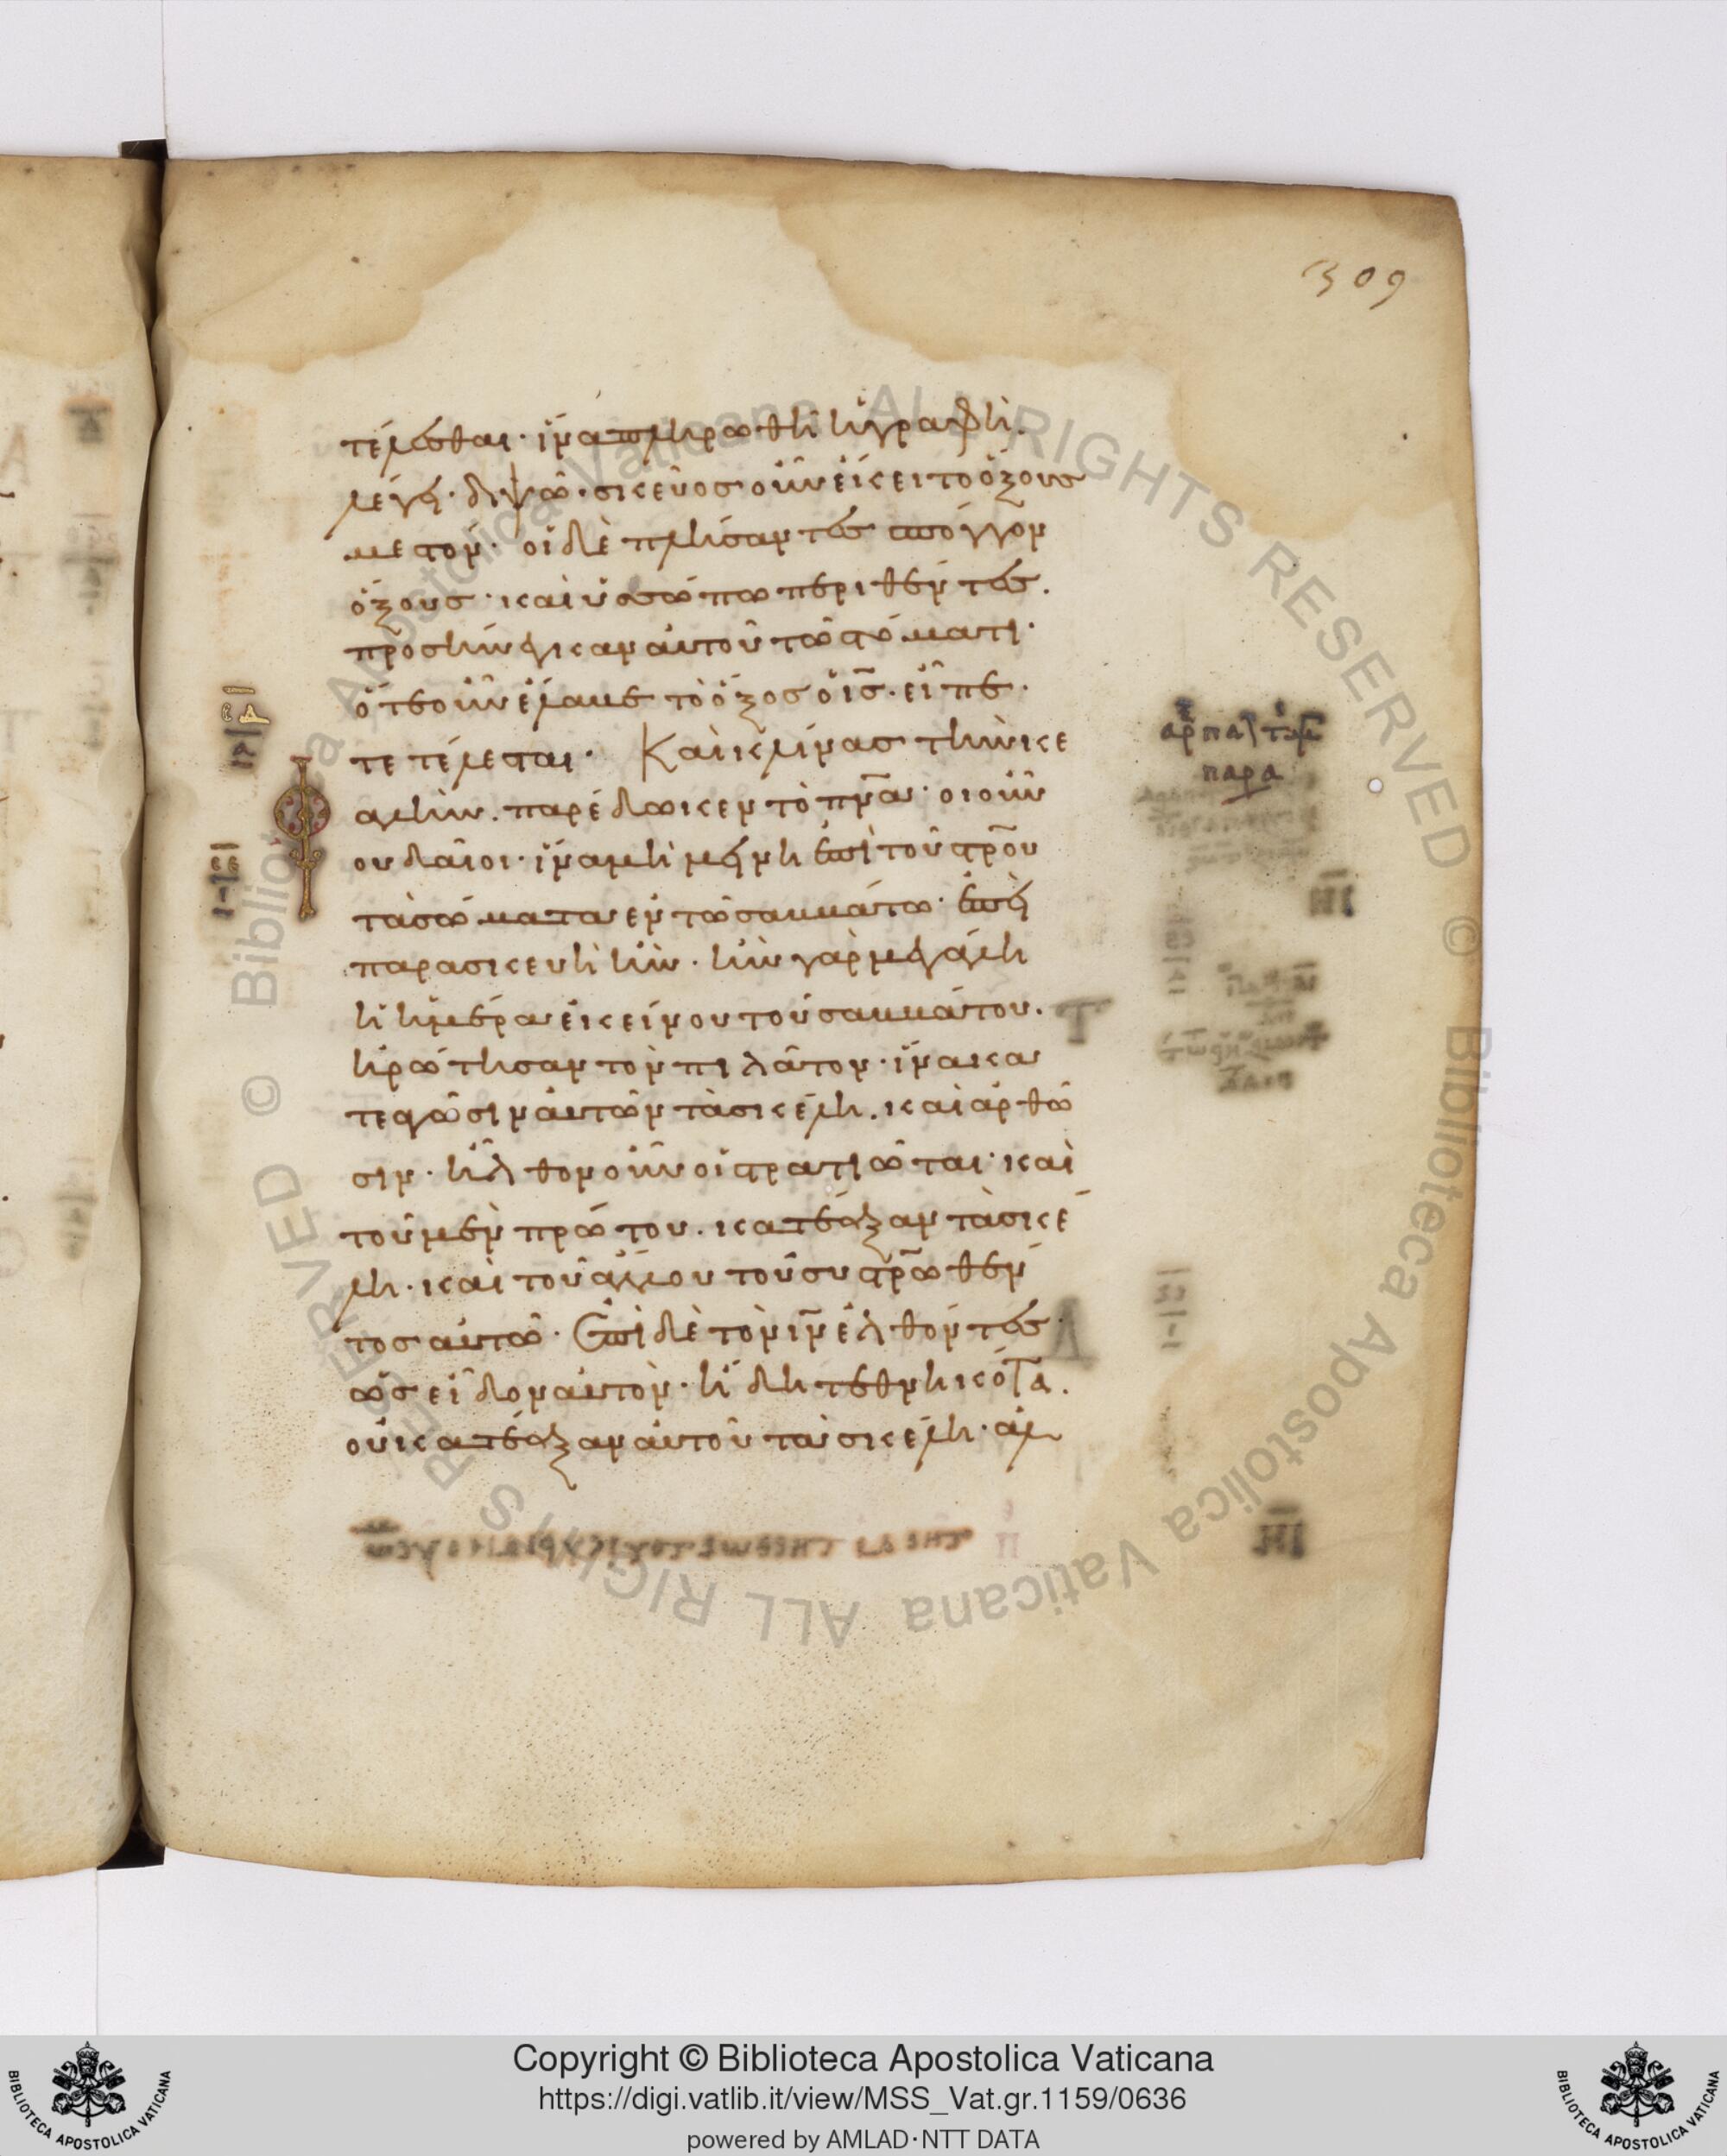 309
τέλεσται· ἵνα πληρωθῆ ἡ γραφὴ.
λέγει· διψῶ· σκεῦος οὖν ἔκειτο ὄξους
μεστόν· οἱ δὲ πλήσαντες σπόγγον
ὄξους· καὶ ὑσσώπω περιθέντες.
προσήνεγκαν αὐτοῦ τῶ στόματι·
ὅτε οὖν ἔλαβε τὸ ὄξος ὁ ις̅· εἶπε·
τετέλεσται· Καὶ κλίνας τὴν κε
φαλὴν. παρέδωκεν τὸ πνα̅· οι οὖν
ουδαῖοι· ἵνα μὴ μείνη ἐπὶ τοῦ στρο̅υ
τὰ σώματα ἐν τῶ σαββάτω· ἐπεὶ
παρασκευὴ ἦν· ἦν γὰρ μεγάλη
ἡ ἡμέρα ἐκείνου τοῦ σαββάτου.
ἠρώτησαν τὸν πιλᾶτον· ἵνα κα
τεαγῶσιν αὐτῶν τὰ σκέλη. καὶ ἀρθῶ
σιν· ἦλθον οὖν οἱ στρατιῶται· καὶ
τοῦ μὲν πρώτου. κατέαξαν τὰ σκέ
λη· καὶ τοῦ ἄλλου τοῦ συστρω̅θέν
τος αὐτῶ· Ἐπὶ δὲ τὸν ιν̅ ἐλθόντες
ὡς εἶδον αὐτὸν· ἤδη τεθνηκότα.
οὐ κατέαξαν αὐτοῦ τὰ σκέλη· ἀλ
Copyright © Biblioteca Apostolica Vaticana
https://digi.vatlib.it/view/MSS_Vat.gr.1159/0636
powered by AMLAD·NTT DATA
BIBLIOTECA APOSTOLICA VATICANA
BIBLIOTECA APOSTOLICA VATICANA